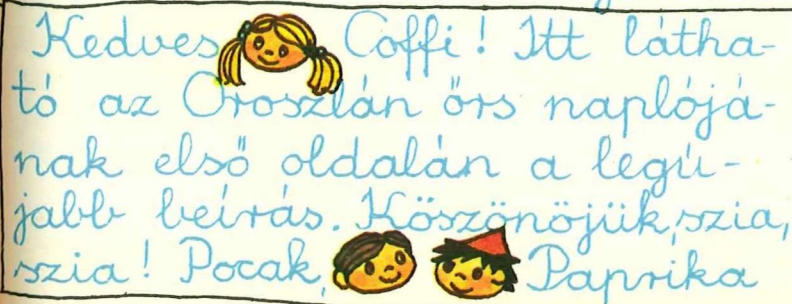 Kedves Coffi! Itt látha-
tó az Oroszlán őrs naplójá-
nak első oldalán a legú-
jabb beírás. Köszönöjük, szia,
szia! Pocak, Paprika